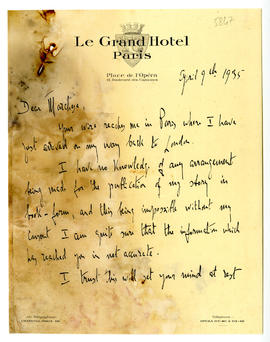 5867
Le Grand Hotel
Paris
Place de l'Opéra
12, Boulevard des Capucines
April 9th 1935
Dear
Your wire reaches me in Paris where I have
just arrived on my way back to London.
I have no knowledge of any arrangement
being made for the publication of my story in
book-form and this being impossible without my
consent I am quite sure that the information which
has reached you is not accurate.
I trust this will set your mind at rest